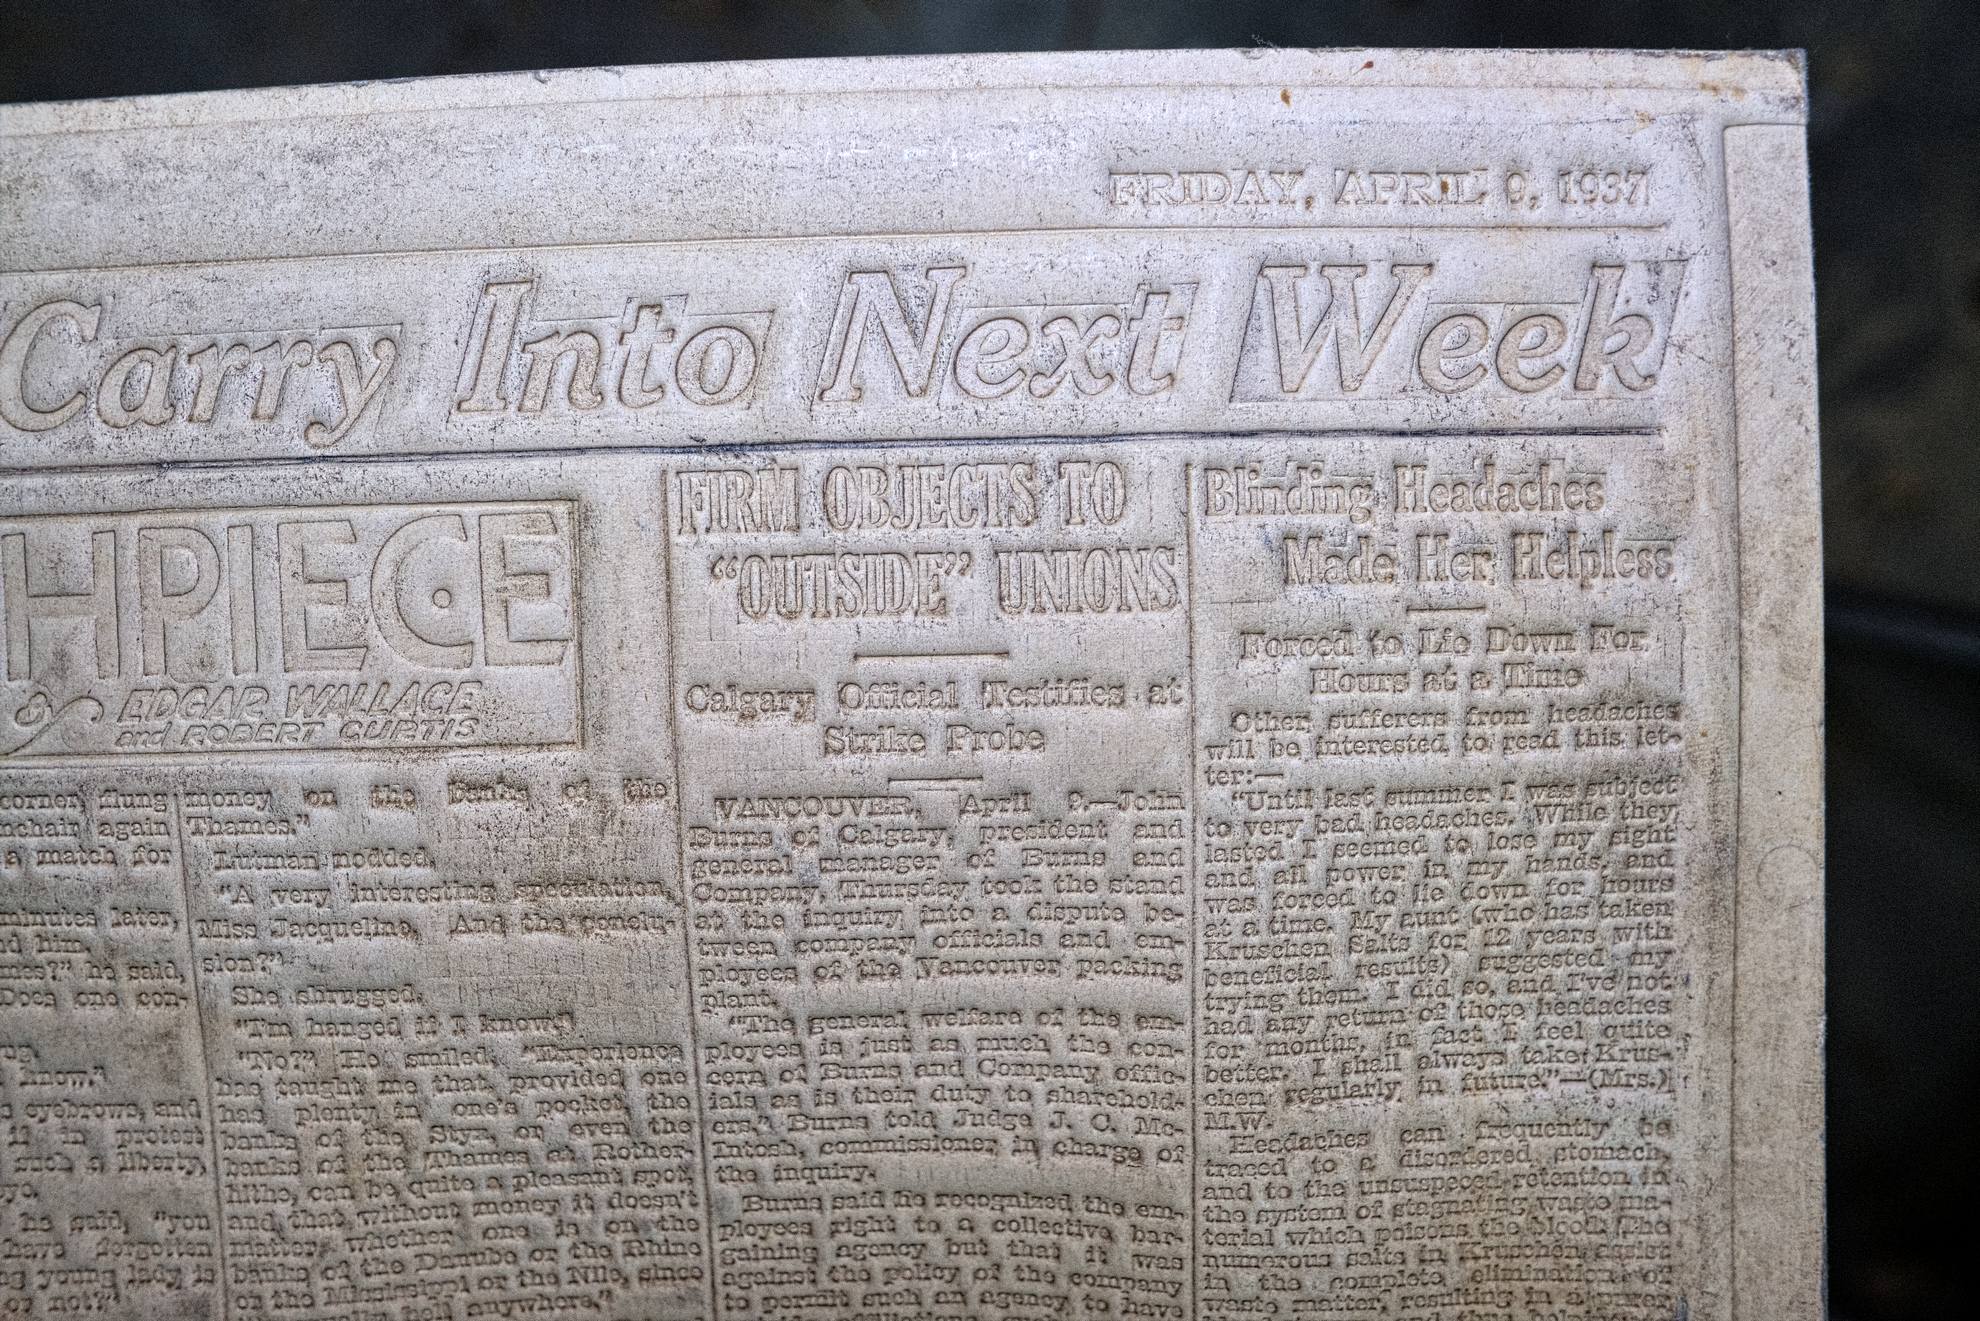 FRIDAY, APRIL 9, 1937
Carry Into Next Week
HPIECE
EDGAR WALLACE
and ROBERT CURTIS
corner, flung
again
a match for
minutes later,
him.
he said,
Does one con-
know."
eyebrows, and
if in protest
such a liberty,
he said, "you
have forgotten
young lady is
or not?"
money on the banks of the
Thames."
Lutman nodded.
"A very interesting speculation,
Miss Jacqueline. And the conclu-
sion?"
She shrugged.
"I'm hanged if I know."
"No?" He smiled. "Experience
has taught me that, provided one
has plenty in one's pocket, the
banks of the Styx, or even the
banks of the Thames at Rother-
hithe, can be quite a pleasant spot,
and that without money it doesn't
matter whether one is on the
banks of the Danube or the Rhine
or the Mississippi or the Nile, since
hell anywhere."
FIRM OBJECTS TO
"OUTSIDE" UNIONS
Calgary Official Testifies at
Strike Probe
VANCOUVER, April 9.—John
Burns of Calgary, president and
general manager of Burns and
Company, Thursday took the stand
at the inquiry into a dispute be-
tween company officials and em-
ployees of the Vancouver packing
plant.
"The general welfare of the em-
ployees is just as much the con-
cern of Burns and Company offic-
ials as is their duty to sharehold-
ers," Burns told Judge J. C. Mc-
Intosh, commissioner in charge of
the inquiry.
Burns said he recognized the em-
ployees right to a collective bar-
gaining agency but that it was
against the policy of the company
to permit such an agency to have
Blinding Headaches
Made Her Helpless
Forced to Lie Down For
Hours at a Time
Other sufferers from headaches
will be interested to read this let-
ter:—
"Until last summer I was subject
to very bad headaches. While they
lasted I seemed to lose my sight
and all power in my hands, and
was forced to lie down for hours
at a time. My aunt (who has taken
Kruschen Salts for 12 years with
beneficial results) suggested my
trying them. I did so, and I've not
had any return of those headaches
for months, in fact I feel quite
better. I shall always take Krus-
chen regularly in future."—(Mrs.)
M.W.
Headaches can frequently be
traced to a disordered stomach,
and to the unsuspeced retention in
the system of stagnating waste ma-
terial which poisons the blood. The
numerous salts in Kruschen assist
in the complete elimination of
waste matter, resulting in a purer